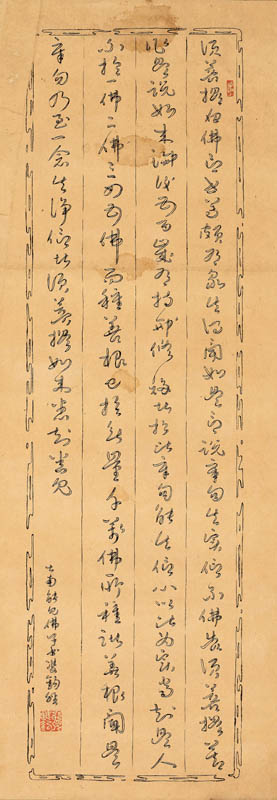 須菩提白佛言世尊頗有眾生得聞如是言說章句生實信不佛告須菩提莫
作是說如來滅後後五百歲有持戒修福者於此章句能生信心以此為實當知是人
不於一佛二佛三四五佛而種善根已於無量千萬佛所種諸善根聞是
章句乃至一念生淨信者須菩提如來悉知悉見